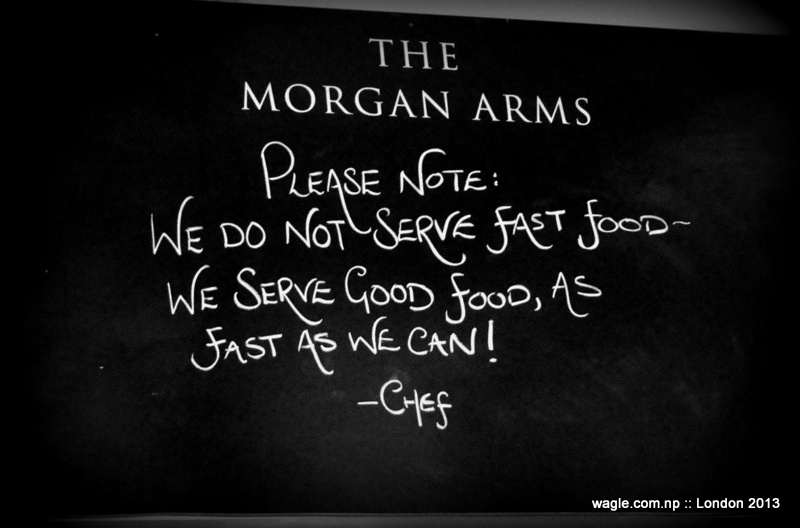 THE
MORGAN ARMS
PLEASE NOTE:
WE DO NOT SERVE FAST FOOD~
WE SERVE GOOD FOOD, AS
FAST AS WE CAN!
-CHEF
wagle.com.np :: London 2013